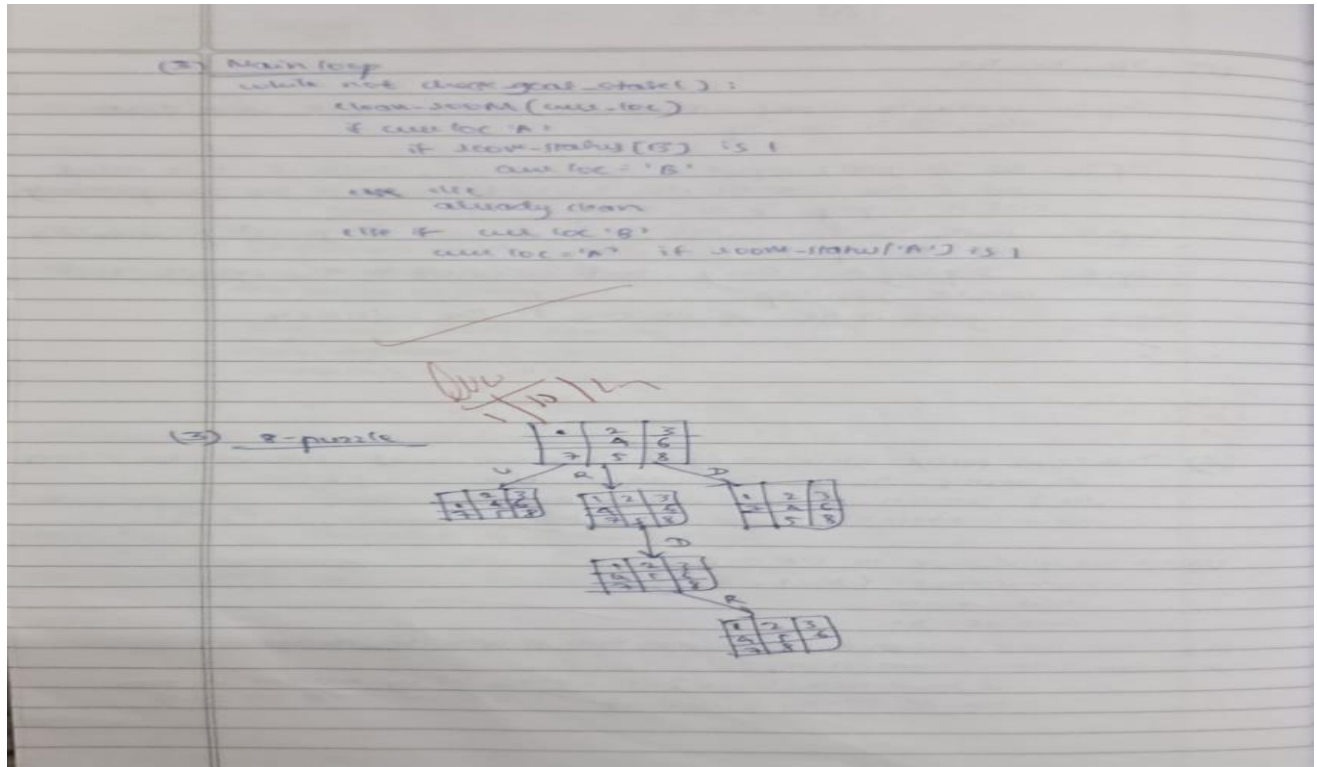 (3) Main loop
while not check_goal_state():
clean-rooms(curr-loc)
if curr loc 'A'
if room-status(B) is 1
curr loc = 'B'
else
already clean
else if curr loc 'B'
curr loc = 'A' if room-status['A'] is 1
(2) 8-puzzle
1 2 3
4 6
7 5 8
U R D
2 3
4 6
7 5 8
1 2 3
4 6
7 5 8
1 2 3
7 4 6
5 8
D
1 2 3
4 5 6
7 8
R
1 2 3
4 5 6
7 8